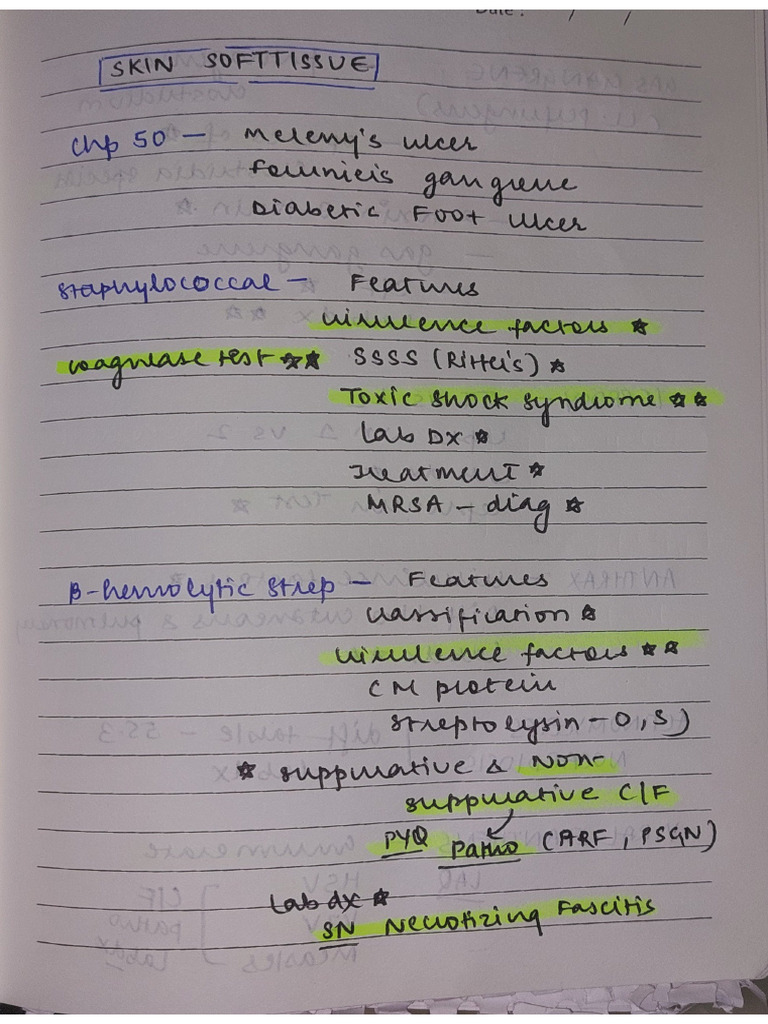 Date : / /
SKIN SOFTTISSUE
Chp 50 — Meleny's ulcer
Fournieis gangrene
Diabetic Foot ulcer
Staphylococcal — Features
virulence factors ☆
coagulase test ☆☆ SSSS (Ritter's) ☆
Toxic shock syndrome ☆☆
Lab Dx ☆
Treatment ☆
MRSA — diag ☆
β-hemolytic strep — Features
classification ☆
virulence factors ☆☆
(M protein
streptolysin - O, S)
☆ suppurative & Non-
suppurative C/F
PYQ Patho (ARF, PSGN)
Lab dx ☆
SN Necrotizing Fascitis